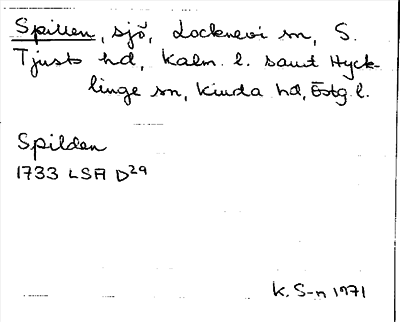 Spillen, sjö, Locknevi sn, S.
Tjusts hd, Kalm. l. samt Hyck-
linge sn, Kinda hd, Östg. l.
Spilden
1733 LSA D29
K. S-n 1971